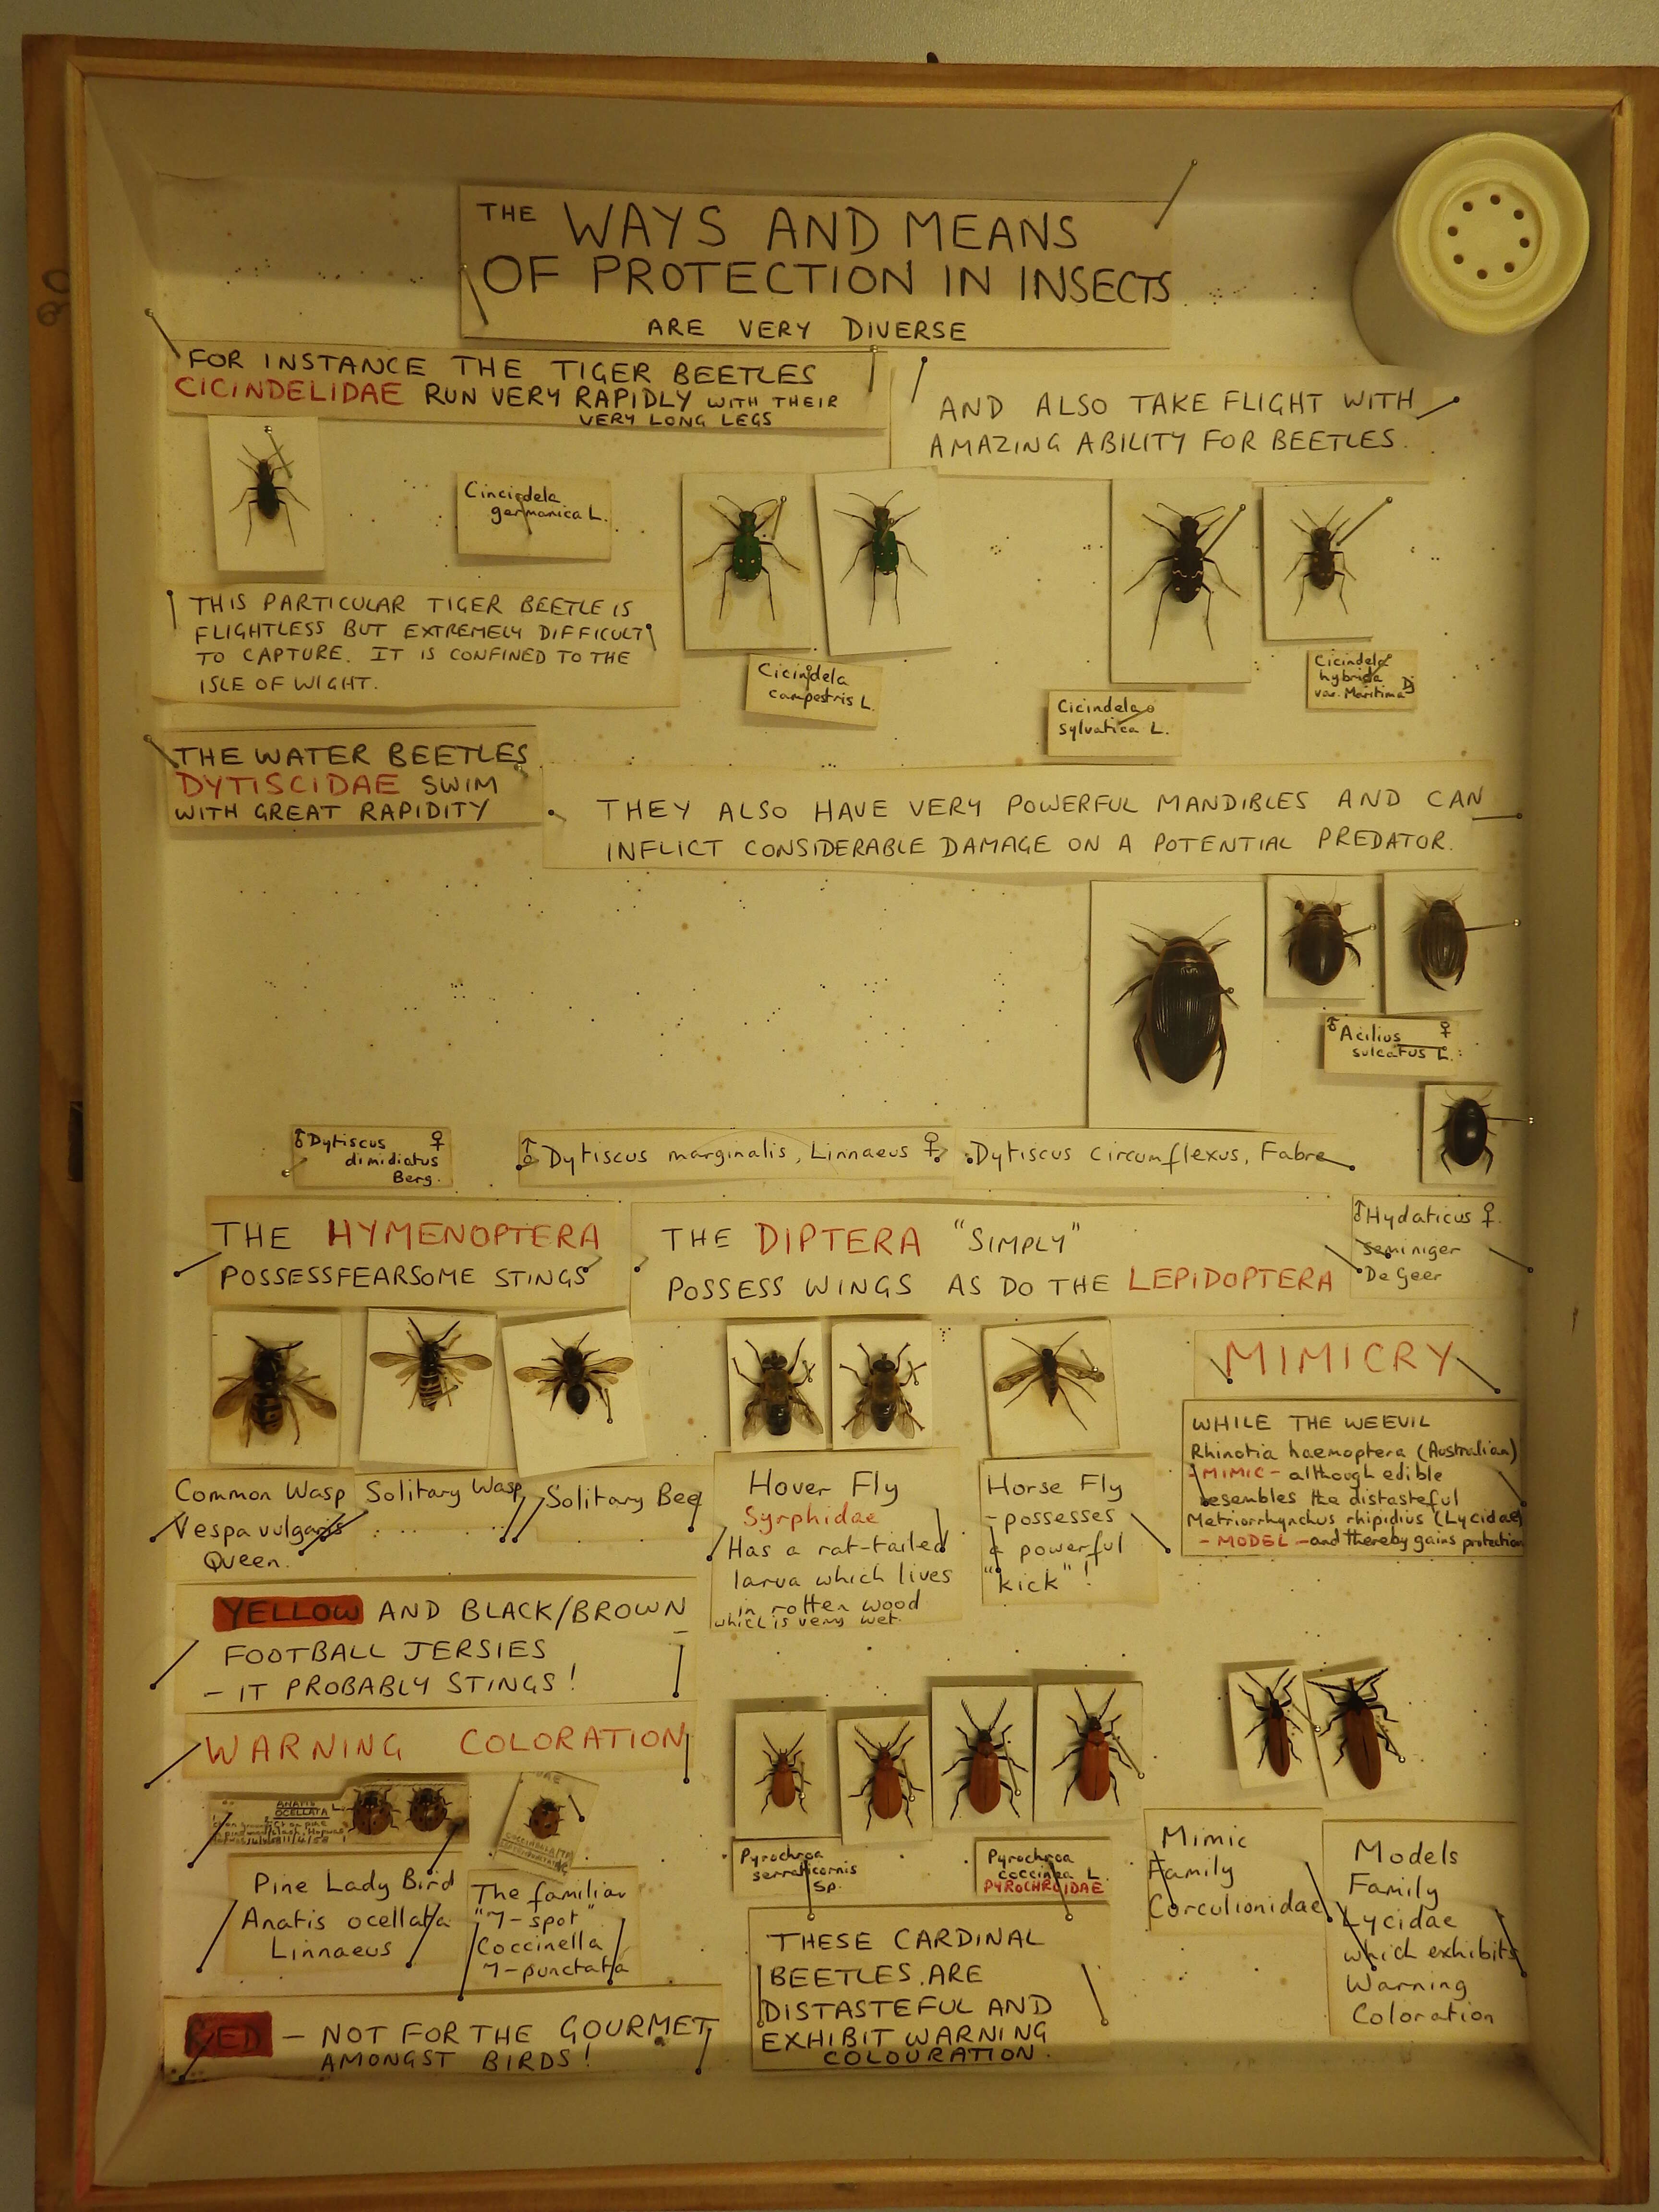 THE WAYS AND MEANS
OF PROTECTION IN INSECTS
ARE VERY DIVERSE
FOR INSTANCE THE TIGER BEETLES
CICINDELIDAE RUN VERY RAPIDLY WITH THEIR
VERY LONG LEGS
AND ALSO TAKE FLIGHT WITH
AMAZING ABILITY FOR BEETLES.
Cincindela
germanica L.
THIS PARTICULAR TIGER BEETLE IS
FLIGHTLESS BUT EXTREMELY DIFFICULT
TO CAPTURE. IT IS CONFINED TO THE
ISLE OF WIGHT.
Cicindela
campestris L.
Cicindela
sylvatica L.
Cicindela
hybrida
var. Maritima Dj
THE WATER BEETLES
DYTISCIDAE SWIM
WITH GREAT RAPIDITY
THEY ALSO HAVE VERY POWERFUL MANDIBLES AND CAN
INFLICT CONSIDERABLE DAMAGE ON A POTENTIAL PREDATOR.
♂ Acilius ♀
sulcatus L.
♂ Dytiscus ♀
dimidiatus
Berg.
♂ Dytiscus marginalis, Linnaeus ♀
Dytiscus circumflexus, Fabre
♂ Hydaticus ♀
seminiger
De Geer
THE HYMENOPTERA
POSSESS FEARSOME STINGS
THE DIPTERA "SIMPLY"
POSSESS WINGS AS DO THE LEPIDOPTERA
Common Wasp
Vespa vulgaris
Queen.
Solitary Wasp
Solitary Bee
Hover Fly
Syrphidae
Has a rat-tailed
larva which lives
in rotten wood
which is very wet.
Horse Fly
- possesses
a powerful
"kick"!
MIMICRY
WHILE THE WEEVIL
Rhinotia haemoptera (Australian)
- MIMIC - although edible
resembles the distasteful
Metriorrhynchus rhipidius (Lycidae)
- MODEL - and thereby gains protection
YELLOW AND BLACK/BROWN
FOOTBALL JERSIES
- IT PROBABLY STINGS!
WARNING COLORATION
ANATIS
OCELLATA L.
Pine Lady Bird
Anatis ocellata
Linnaeus
The familiar
"7-spot"
Coccinella
7-punctata
RED - NOT FOR THE GOURMET
AMONGST BIRDS!
Pyrochroa
serraticornis
Sp.
Pyrochroa
coccinea L.
PYROCHROIDAE
THESE CARDINAL
BEETLES ARE
DISTASTEFUL AND
EXHIBIT WARNING
COLOURATION.
Mimic
Family
Corculionidae
Models
Family
Lycidae
which exhibits
Warning
Coloration